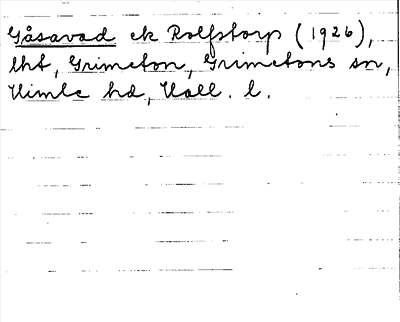 Gåsavad ek Rolfstorp (1926),
lht, Grimeton, Grimetons sn,
Himle hd, Hall. l.